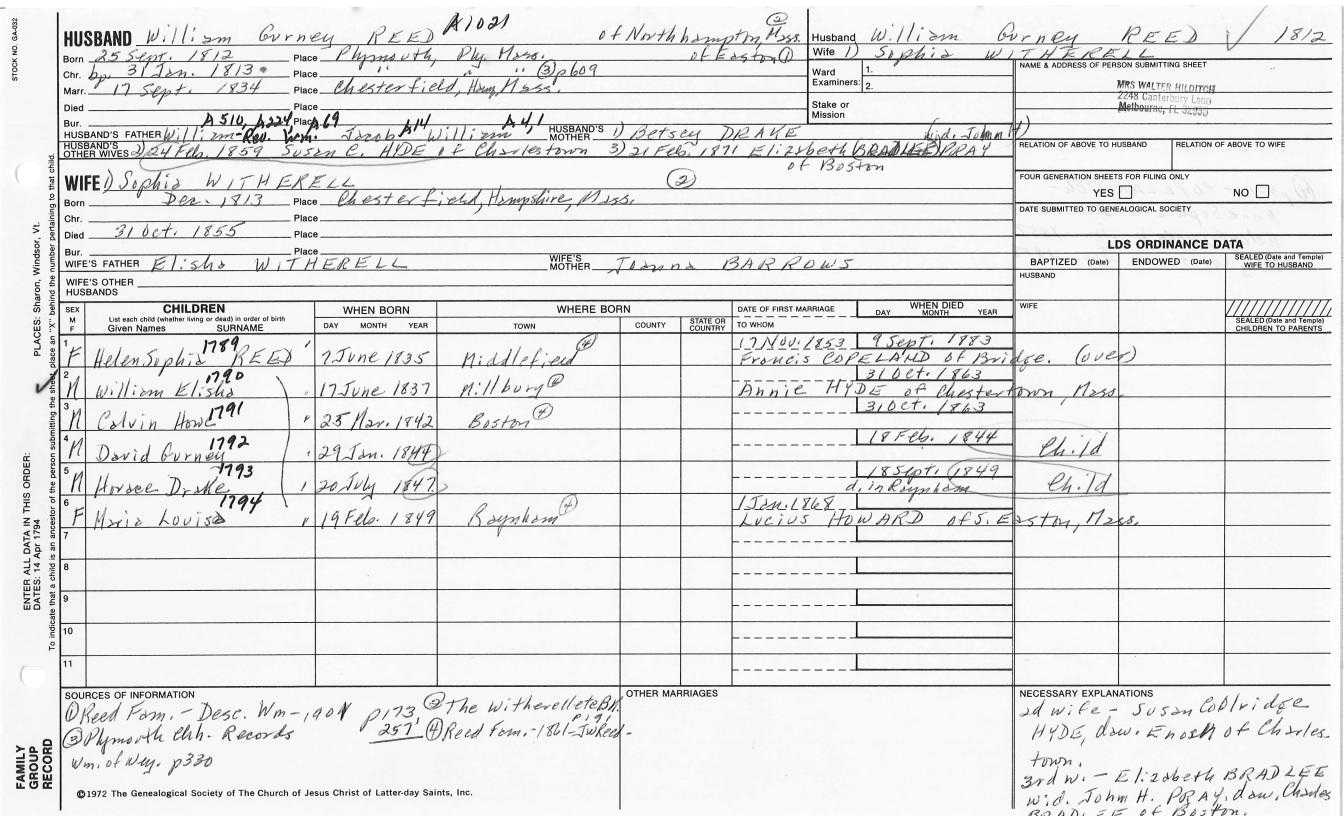 STOCK NO. GA-032
HUSBAND William Gurney REED A1021 of Northhampton, Mass. ②
Born 25 Sept. 1812 Place Plymouth, Ply. Mass. of Easton ①
Chr. bp. 31 Jan. 1813 Place " " " ③ p609
Marr. 17 Sept. 1834 Place Chesterfield, Hamp, Mass.
Died Place
Bur. Place
A510, A224, A69 A14 A4,1
HUSBAND'S FATHER William - Rev. Wm. Jacob William HUSBAND'S MOTHER 1) Betsey DRAKE (wid. John H)
HUSBAND'S OTHER WIVES 2) 24 Feb. 1859 Susan C. HYDE of Charlestown 3) 21 Feb. 1871 Elizabeth (BRADLEE) PRAY
of Boston
WIFE 1) Sophia WITHERELL ②
Born Dec. 1813 Place Chesterfield, Hampshire, Mass.
Chr. Place
Died 31 Oct. 1855 Place
Bur. Place
WIFE'S FATHER Elisha WITHERELL WIFE'S MOTHER Joanna BARROWS
WIFE'S OTHER HUSBANDS
Husband William Gurney REED ✓ 1812
Wife 1) Sophia WITHERELL
Ward Examiners: 1.
2.
Stake or Mission
NAME & ADDRESS OF PERSON SUBMITTING SHEET
MRS WALTER HILDITCH
2248 Canterbury Lane
Melbourne, FL 32935
RELATION OF ABOVE TO HUSBAND RELATION OF ABOVE TO WIFE
FOUR GENERATION SHEETS FOR FILING ONLY
YES NO
DATE SUBMITTED TO GENEALOGICAL SOCIETY
LDS ORDINANCE DATA
BAPTIZED (Date) ENDOWED (Date) SEALED (Date and Temple) WIFE TO HUSBAND
HUSBAND
WIFE
SEALED (Date and Temple) CHILDREN TO PARENTS
SEX M F CHILDREN List each child (whether living or dead) in order of birth Given Names SURNAME WHEN BORN DAY MONTH YEAR WHERE BORN TOWN COUNTY STATE OR COUNTRY DATE OF FIRST MARRIAGE TO WHOM WHEN DIED DAY MONTH YEAR
1 F Helen Sophia 1789 REED 7 June 1835 Middlefield ④ 17 Nov. 1853 9 Sept. 1883
Francis COPELAND of Bridge. (over)
2 M William Elisha 1790 17 June 1837 Millbury ④ 31 Oct. 1863
Annie HYDE of Chestertown, Mass.
3 M Calvin Howe 1791 25 Mar. 1842 Boston ④ 31 Oct. 1863
4 M David Gurney 1792 29 Jan. 1844 18 Feb. 1844 Child
5 M Horace Drake 1793 20 July 1847 18 Sept. 1849 Child
d. in Raynham
6 F Maria Louisa 1794 19 Feb. 1849 Raynham ④ 1 Jan. 1868
Lucius HOWARD of S. Easton, Mass.
7
8
9
10
11
SOURCES OF INFORMATION
① Reed Fam. - Desc. Wm - 1901 p173 ② The Witherell
③ Plymouth Chh. Records 257 ④ Reed Fam. - 1861 - JWReed - p191
Wm. of Wey. p330
OTHER MARRIAGES
NECESSARY EXPLANATIONS
2d wife - Susan Coolridge
HYDE, daw. Enosh of Charles-
town.
3rd w. - Elizabeth BRADLEE
wid. John H. PRAY, daw. Charles
BRADLEE of Boston.
©1972 The Genealogical Society of The Church of Jesus Christ of Latter-day Saints, Inc.
FAMILY GROUP RECORD
ENTER ALL DATA IN THIS ORDER:
DATES: 14 Apr 1794
PLACES: Sharon, Windsor, Vt.
To indicate that a child is an ancestor of the person submitting the sheet, place an "X" behind the number pertaining to that child.